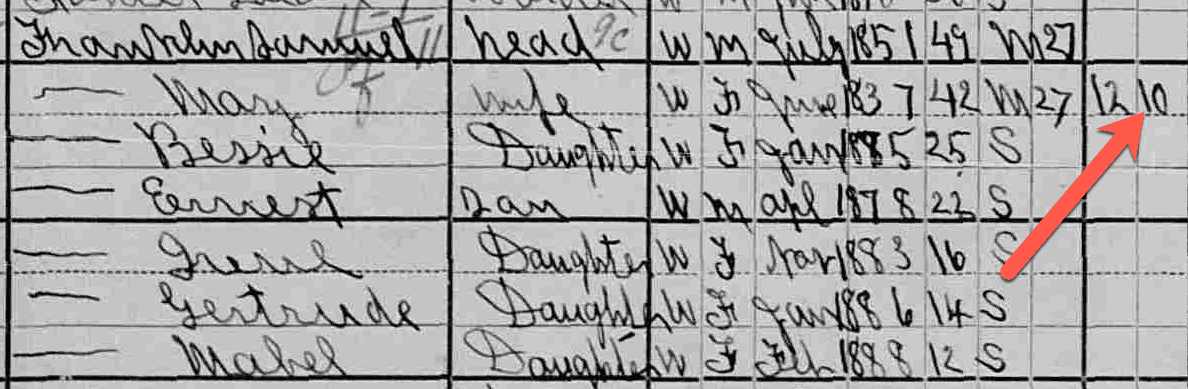 Franklin Samuel head W M July 1851 49 M 27
— Mary wife W F June 1837 42 M 27 12 10
— Bessie Daughter W F Jan 1885 25 S
— Ernest Son W M Apl 1878 22 S
— Daughter W F 1883 16 S
— Gertrude Daughter W F Jan 1886 14 S
— Mabel Daughter W F Feb 1888 12 S